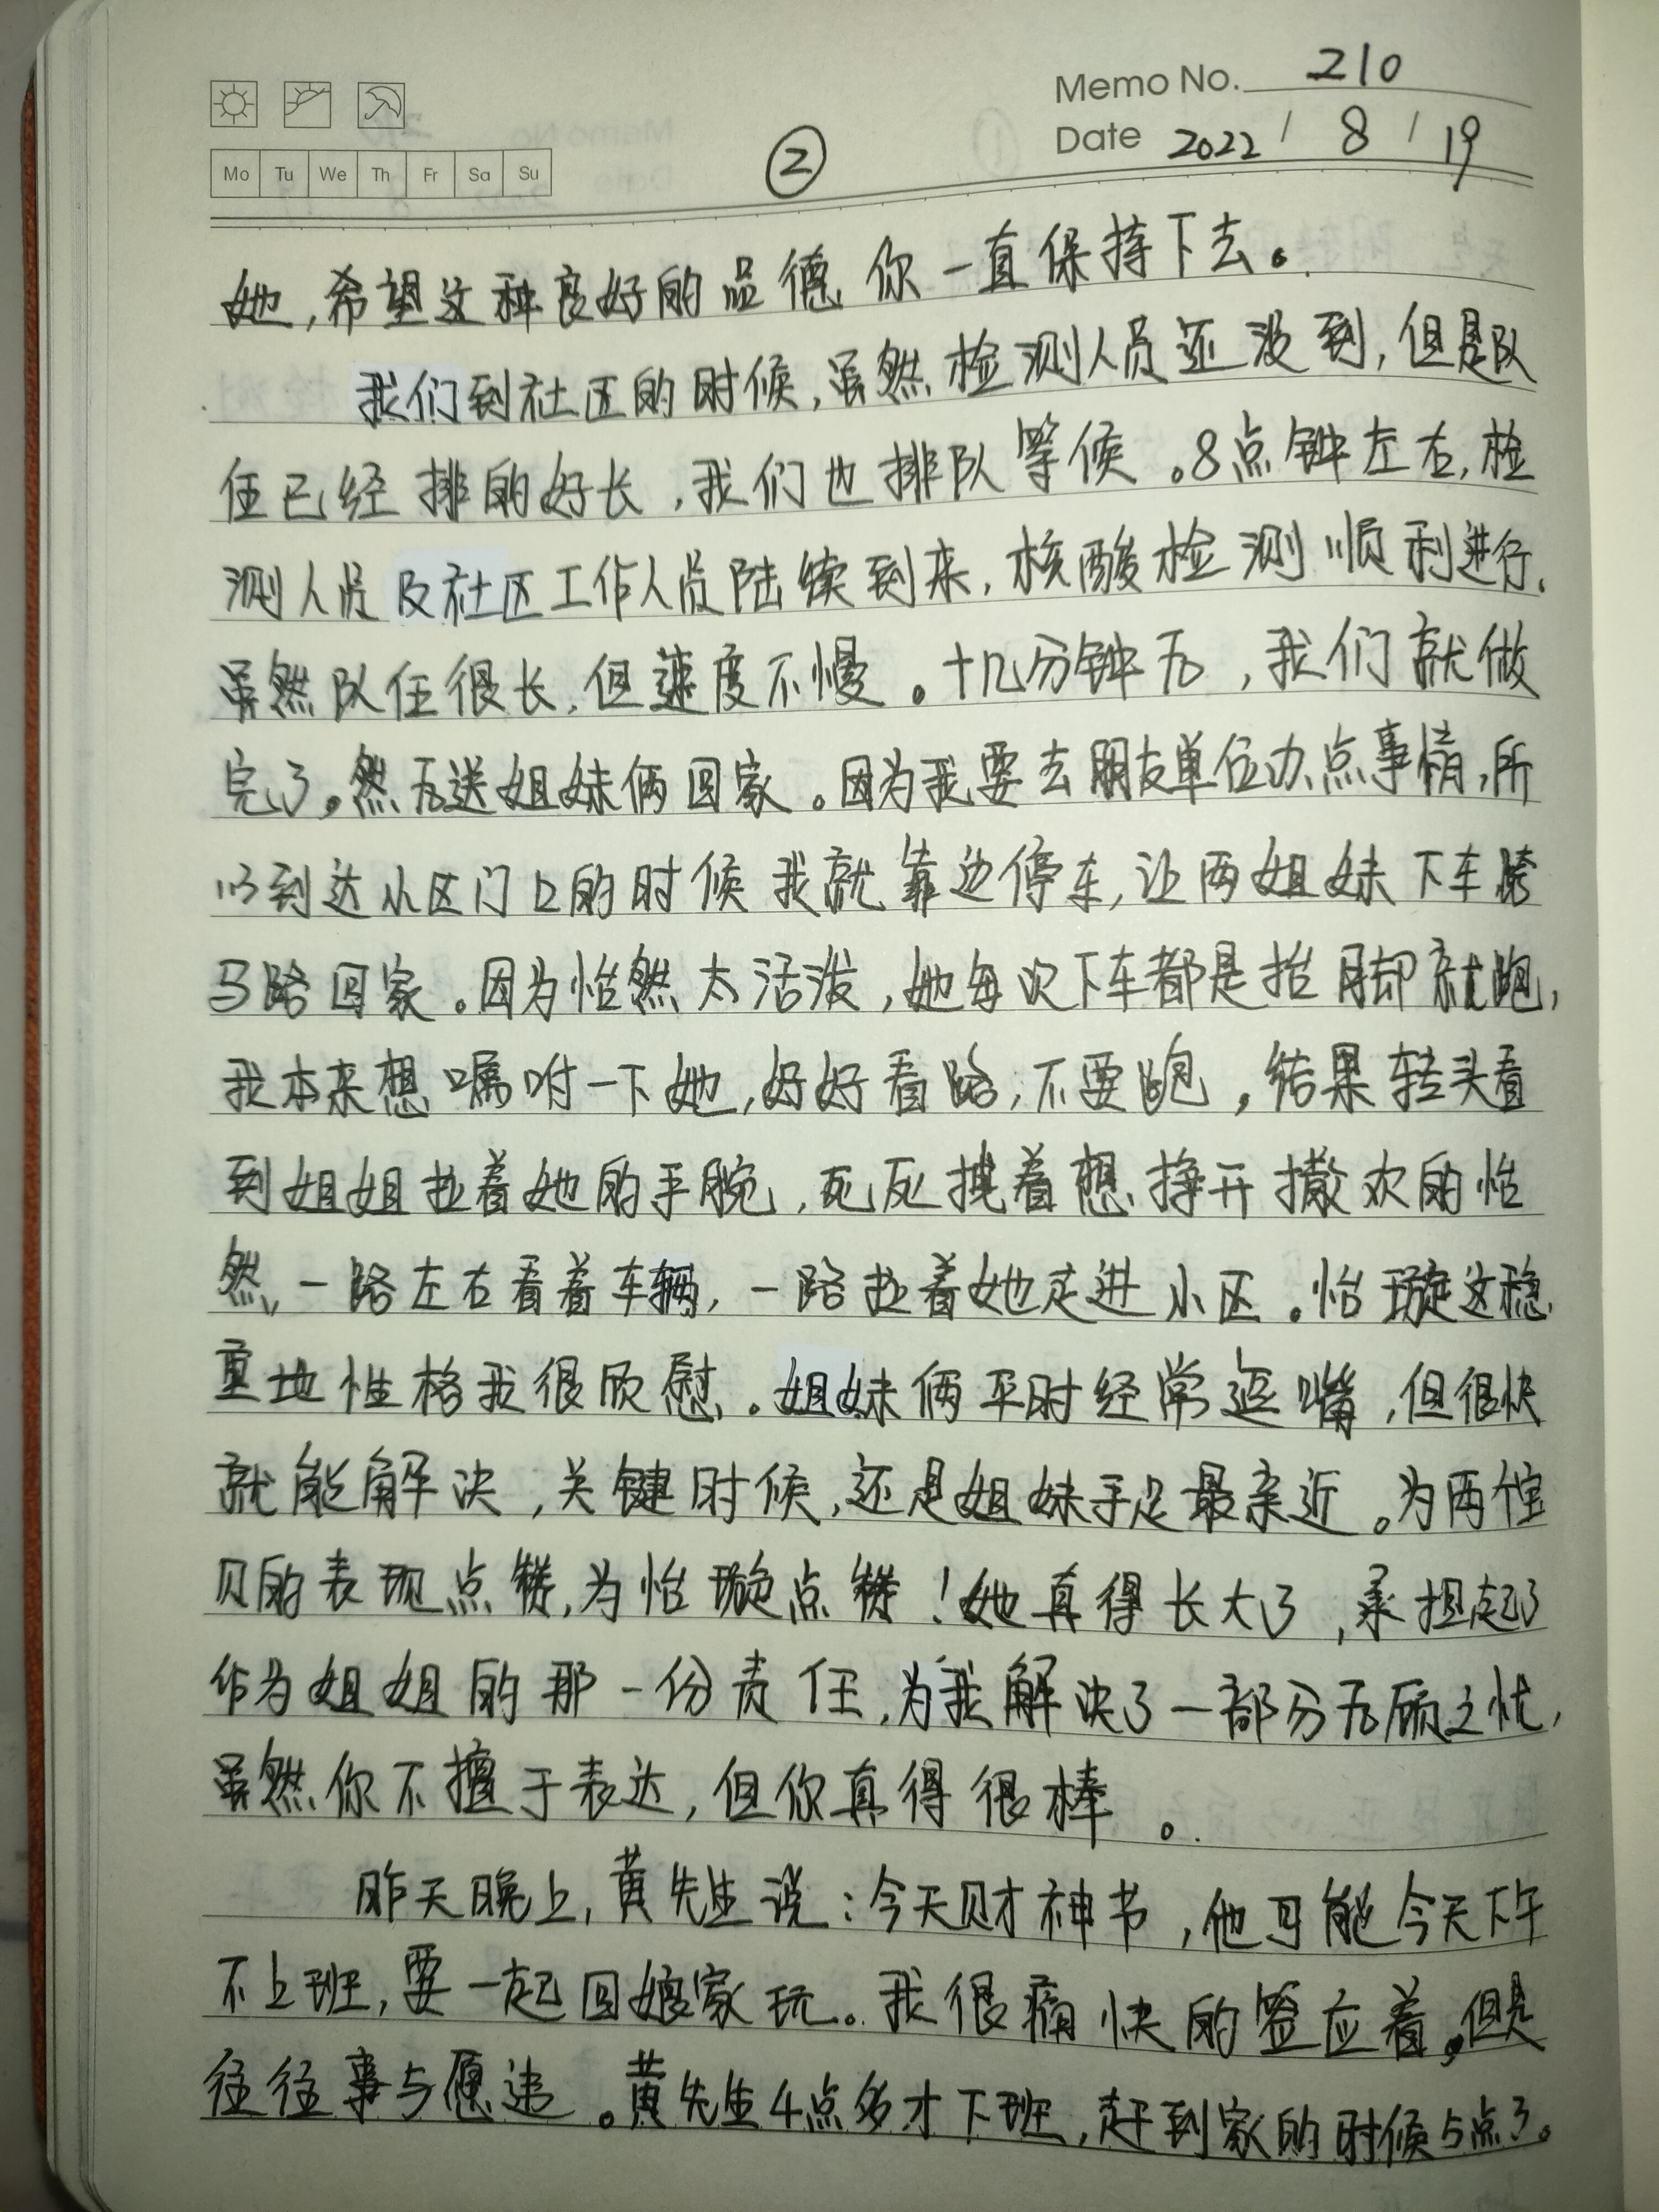 Memo No. 210
Mo Tu We Th Fr Sa Su
②
Date 2022 / 8 / 19
她,希望这种良好的品德你一直保持下去。
我们到社区的时候,虽然检测人员还没到,但是队
伍已经排的好长,我们也排队等候。8点钟左右,检
测人员及社区工作人员陆续到来,核酸检测顺利进行.
虽然队伍很长,但速度不慢。十几分钟后,我们就做
完了。然后送姐妹俩回家。因为我要去朋友单位办点事情,所
以到达小区门口的时候我就靠边停车,让两姐妹下车跨
马路回家。因为怡然太活泼,她每次下车都是抬脚就跑,
我本来想嘱咐一下她,好好看路,不要跑,结果转头看
到姐姐拉着她的手腕,死死拽着想挣开撒欢的怡
然,一路左右看着车辆,一路拉着她走进小区。怡璇这稳
重地性格我很欣慰。姐妹俩平时经常逗嘴,但很快
就能解决,关键时候,还是姐妹手足最亲近。为两个宝
贝的表现点赞,为怡璇点赞!她真得长大了,承担起了
作为姐姐的那一份责任,为我解决了一部分后顾之忧,
虽然你不擅于表达,但你真得很棒。
昨天晚上,黄先生说:今天财神节,他可能今天下午
不上班,要一起回娘家玩。我很痛快的答应着,但是
往往事与愿违。黄先生4点多才下班,赶到家的时候5点了。